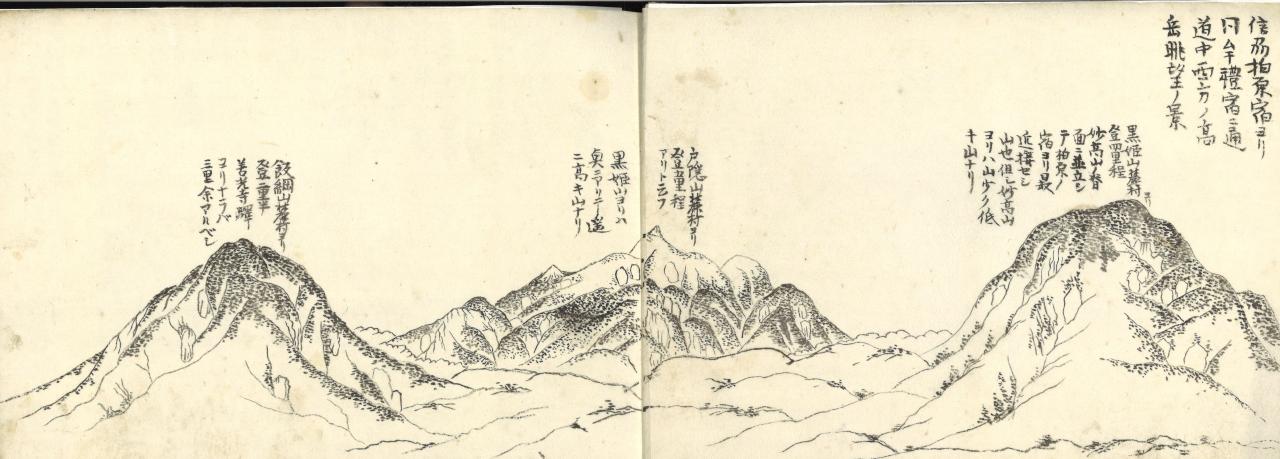 信州柏原宿ヨリ
同ムレ禮宿ニ通
道中西方ノ高
岳眺望ノ景
黒姫山麓村ヨリ
登四里程
妙高山ノ脊
面ニ並立シ
テ柏原ノ
宿ヨリ最
近接セシ
山也但シ妙高山
ヨリハ山少ク低
キ山ナリ
戸隠山麓村ヨリ
登壹里程
アリト云フ
黒姫山ヨリハ
奥ニアリテ遥
ニ高キ山ナリ
飯綱山麓村ヨリ
登壹里半
善光寺驛
ヨリナラバ
三里余アルベシ